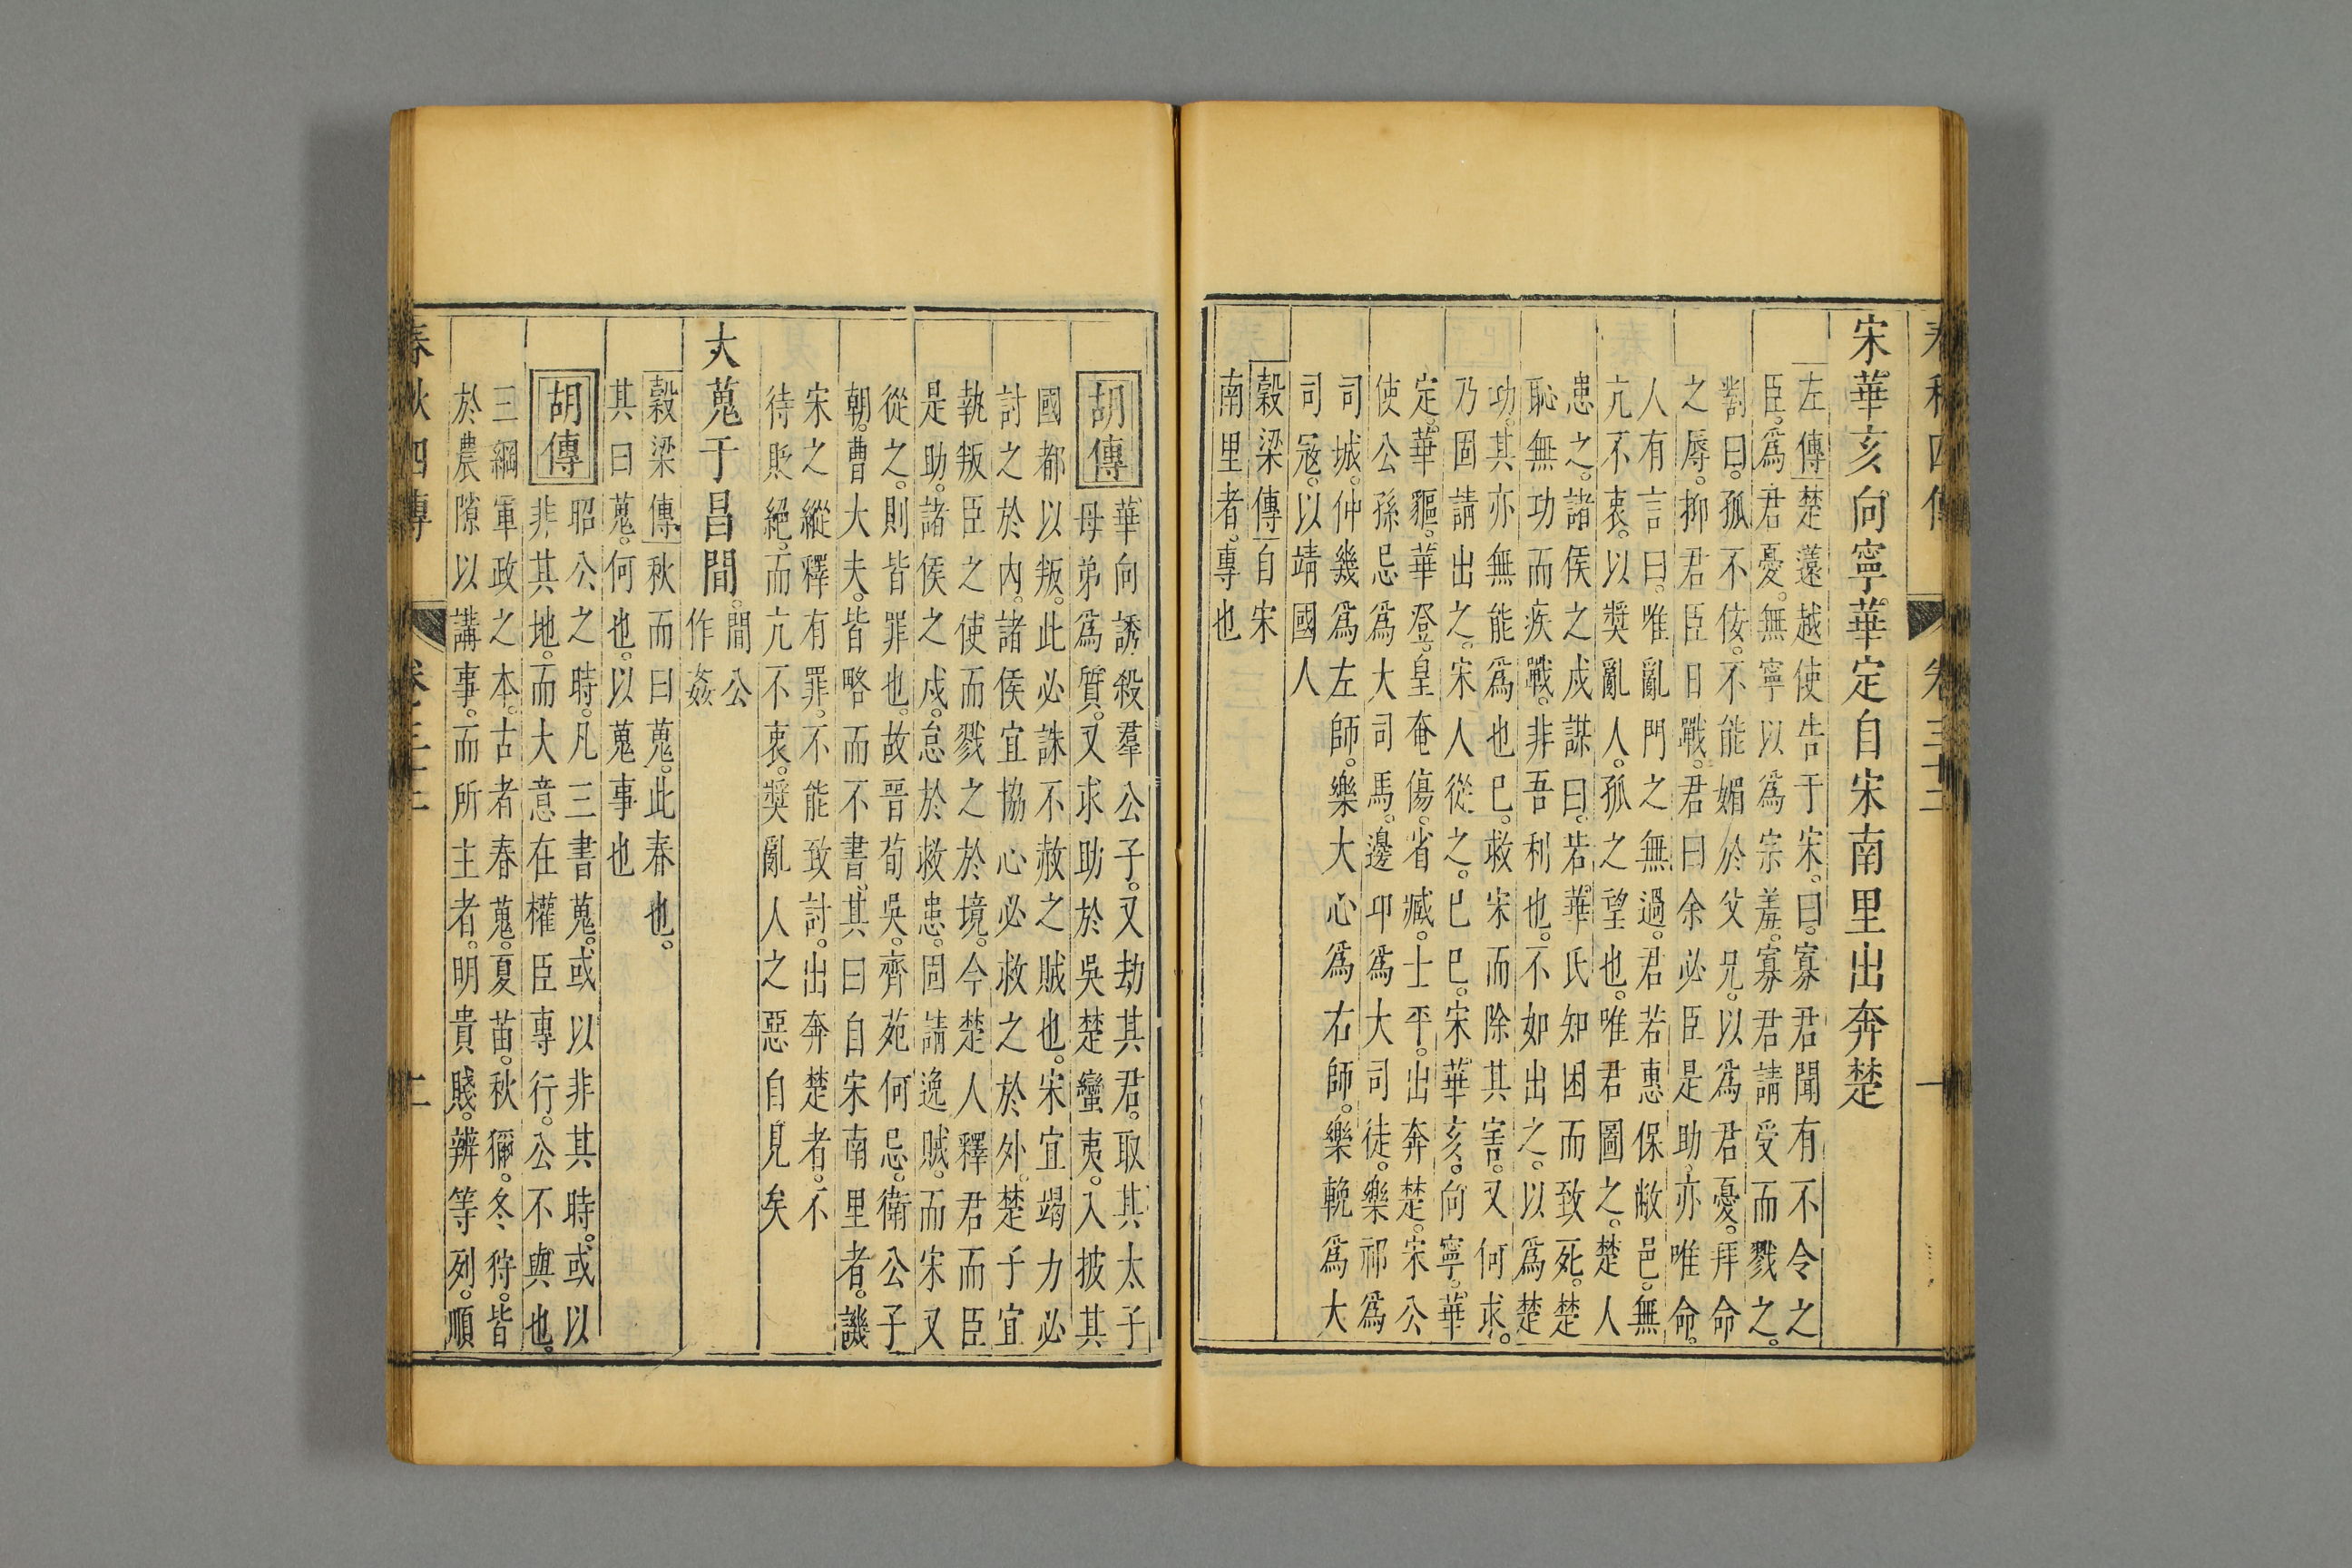 宋華亥向寧華定自宋南里出奔楚
左傳楚薳越使告于宋曰寡君聞有不令之
臣爲君憂無寧以爲宗羞寡君請受而戮之
對曰孤不佞不能媚於父兄以爲君憂拜命
之辱抑君臣日戰君曰余必臣是助亦唯命
人有言曰唯亂門之無過君若惠保敝邑無
亢不衷以奬亂人孤之望也唯君圖之楚人
患之諸侯之戍謀曰若華氏知困而致死楚
恥無功而疾戰非吾利也不如出之以爲楚
功其亦無能爲也已救宋而除其害又何求
乃固請出之宋人從之己巳宋華亥向寧華
定華貙華登皇奄傷省臧士平出奔楚宋公
使公孫忌爲大司馬邊卬爲大司徒樂祁爲
司城仲幾爲左師樂大心爲右師樂輓爲大
司寇以靖國人
穀梁傳自宋
南里者專也
胡傳華向誘殺羣公子又劫其君取其太子
母弟爲質又求助於吳楚蠻夷入披其
國都以叛此必誅不赦之賊也宋宜竭力必
討之於內諸侯宜協心必救之於外楚子宜
執叛臣之使而戮之於境今楚人釋君而臣
是助諸侯之戍怠於救患固請逸賊而宋又
從之則皆罪也故晉荀吳齊苑何忌衛公子
朝曹大夫皆略而不書其曰自宋南里者譏
宋之縱釋有罪不能致討出奔楚者不
待貶絕而亢不衷奬亂人之惡自見矣
大蒐于昌間間公
作姦
穀梁傳秋而曰蒐此春也
其曰蒐何也以蒐事也
胡傳昭公之時凡三書蒐或以非其時或以
非其地而大意在權臣專行公不與也
三綱軍政之本古者春蒐夏苗秋獮冬狩皆
於農隙以講事而所主者明貴賤辨等列順
春秋四傳 卷三十二 二